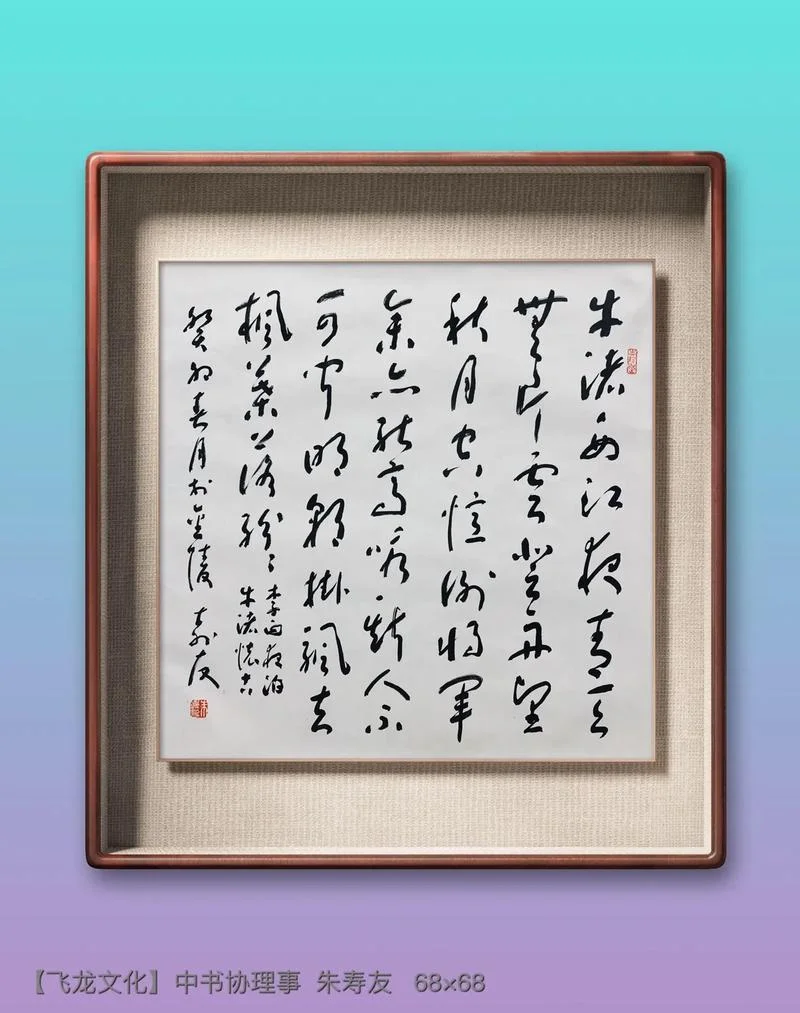 牛渚西江夜青天
無片雲登舟望
秋月空憶謝将軍
余亦能高詠斯人不
可闻明朝掛帆去
楓葉落紛々
李白夜泊
牛渚懷古
癸卯春月於金陵 寿友
【飞龙文化】中书协理事 朱寿友 68×68